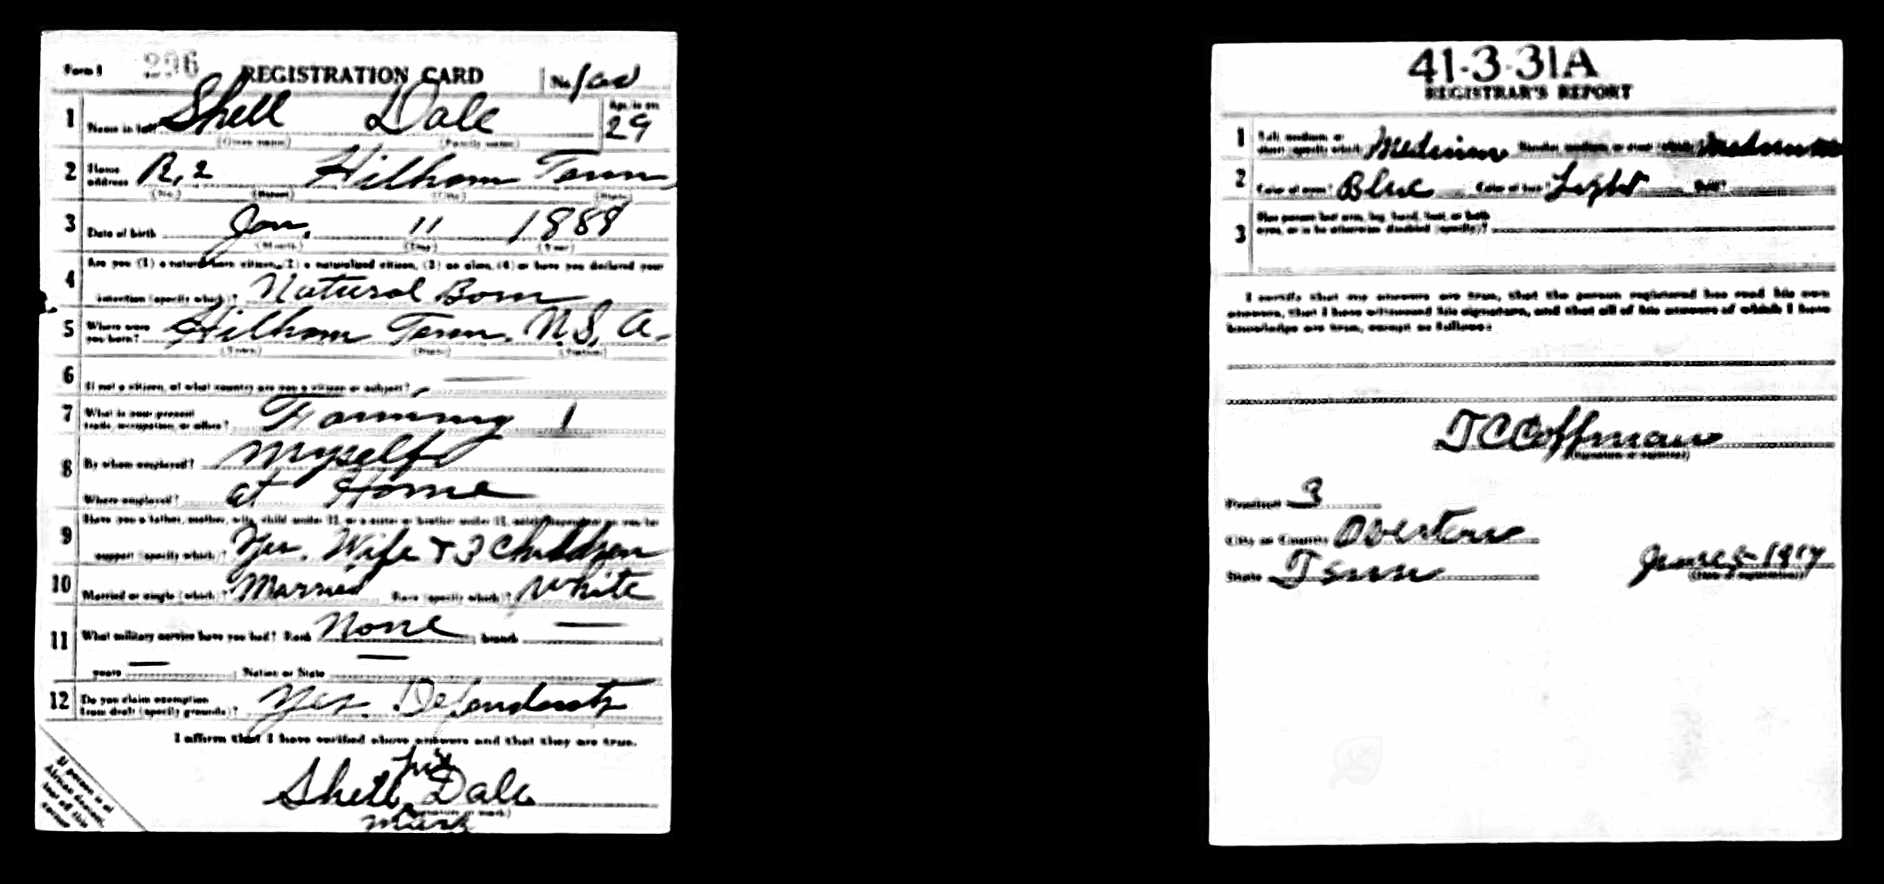 Form 1 296 REGISTRATION CARD No.
1 Name in full Shell Dale Age, in yrs. 29
(Given name) (Family name)
2 Home address R, 2 Hilham Tenn
(No.) (Street) (City) (State)
3 Date of birth Jan. 11 1888
(Month) (Day) (Year)
Are you (1) a natural-born citizen, (2) a naturalized citizen, (3) an alien, (4) or have you declared your
4 intention (specify which)? Natural Born
5 Where were you born? Hilham Tenn. U.S. A.
(Town) (State) (Nation)
6 If not a citizen, of what country are you a citizen or subject?
7 What is your present trade, occupation, or office? Farming 1
8 By whom employed? Myself
Where employed? at Home
Have you a father, mother, wife, child under 12, or a sister or brother under 12, solely dependent on you for
9 support (specify which)? Yes. Wife & 3 Children
10 Married or single (which)? Married Race (specify which)? White
11 What military service have you had? Rank None ; branch
years ; Nation or State
12 Do you claim exemption from draft (specify grounds)? Yes.
I affirm that I have verified above answers and that they are true.
his
Shell Dale
(Signature or mark)
mark
If person is of
African descent,
tear off this
corner
41-3-31A
REGISTRAR'S REPORT
1 Tall, medium, or short (specify which)? Medium Slender, medium, or stout (which)? Medium
2 Color of eyes? Blue Color of hair? Light Bald?
3 Has person lost arm, leg, hand, foot, or both eyes, or is he otherwise disabled (specify)?
I certify that my answers are true, that the person registered has read his own
answers, that I have witnessed his signature, and that all of his answers of which I have
knowledge are true, except as follows:
T C Coffman
(Signature of registrar)
Precinct 3
City or County Overton
State Tenn June 5 - 1917
(Date of registration)